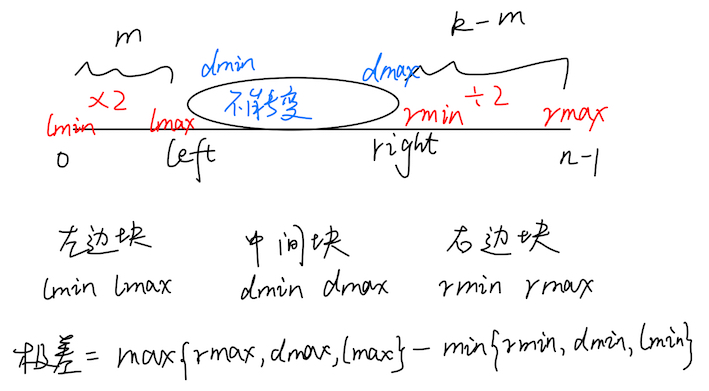 m k-m
dmin dmax
×2 不转变 ÷2
lmin lmax rmin rmax
0 left right n-1
左边块 中间块 右边块
lmin lmax dmin dmax rmin rmax
极差 = max{rmax, dmax, lmax} - min{rmin, dmin, lmin}